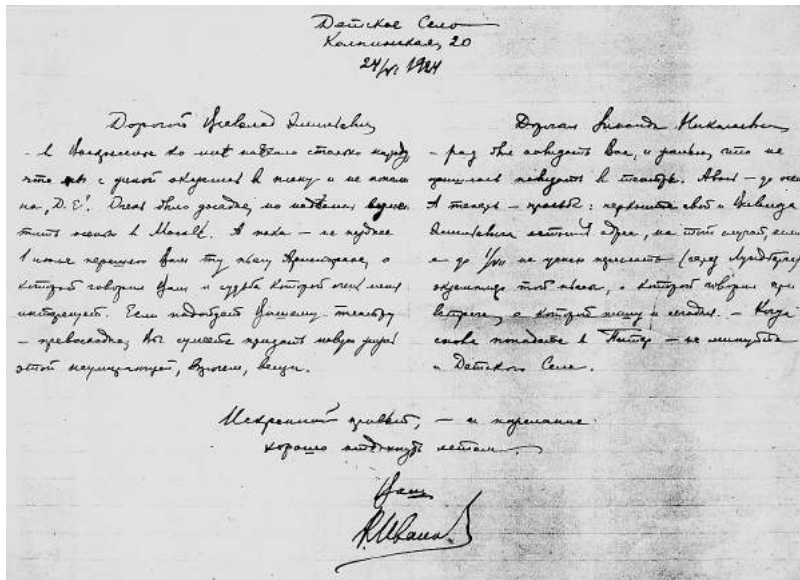 Детское Село
Колпинская, 20
24/VI 1924
Дорогой Всеволод Эмильевич
- в Воскресенье ко мне наехало столько народу,
что мы с женой очутились в плену и не попали
на „D.E“. Очень было досадно, но надеемся
осенью в Москве. А пока — не позднее
1 июля перешлю Вам ту пьесу Аристофана, о
которой говорил Вам и судьба которой очень меня
интересует. Если подойдет Вашему театру
— превосходно, Вы сумеете придать новую
этой неумирающей, впрочем, вещи.
Дорогая Зинаида Николаевна
— рад был повидать Вас, и жаль, что не
пришлось повидать в театре. Авось — до осени
А теперь — просьба: черкните свой и Всеволода
Эмильевича летний адрес, на тот случай, если
я до 1/VII не успею прислать (через Лундберга)
экземпляр той пьесы, о которой говорил при
встрече, о которой пишу и сегодня. — Когда
снова попадете в Питер — не минуйте
и Детского Села.
Искренний привет, — и пожелание
хорошо отдохнуть летом.
Ваш
Р. Иванов